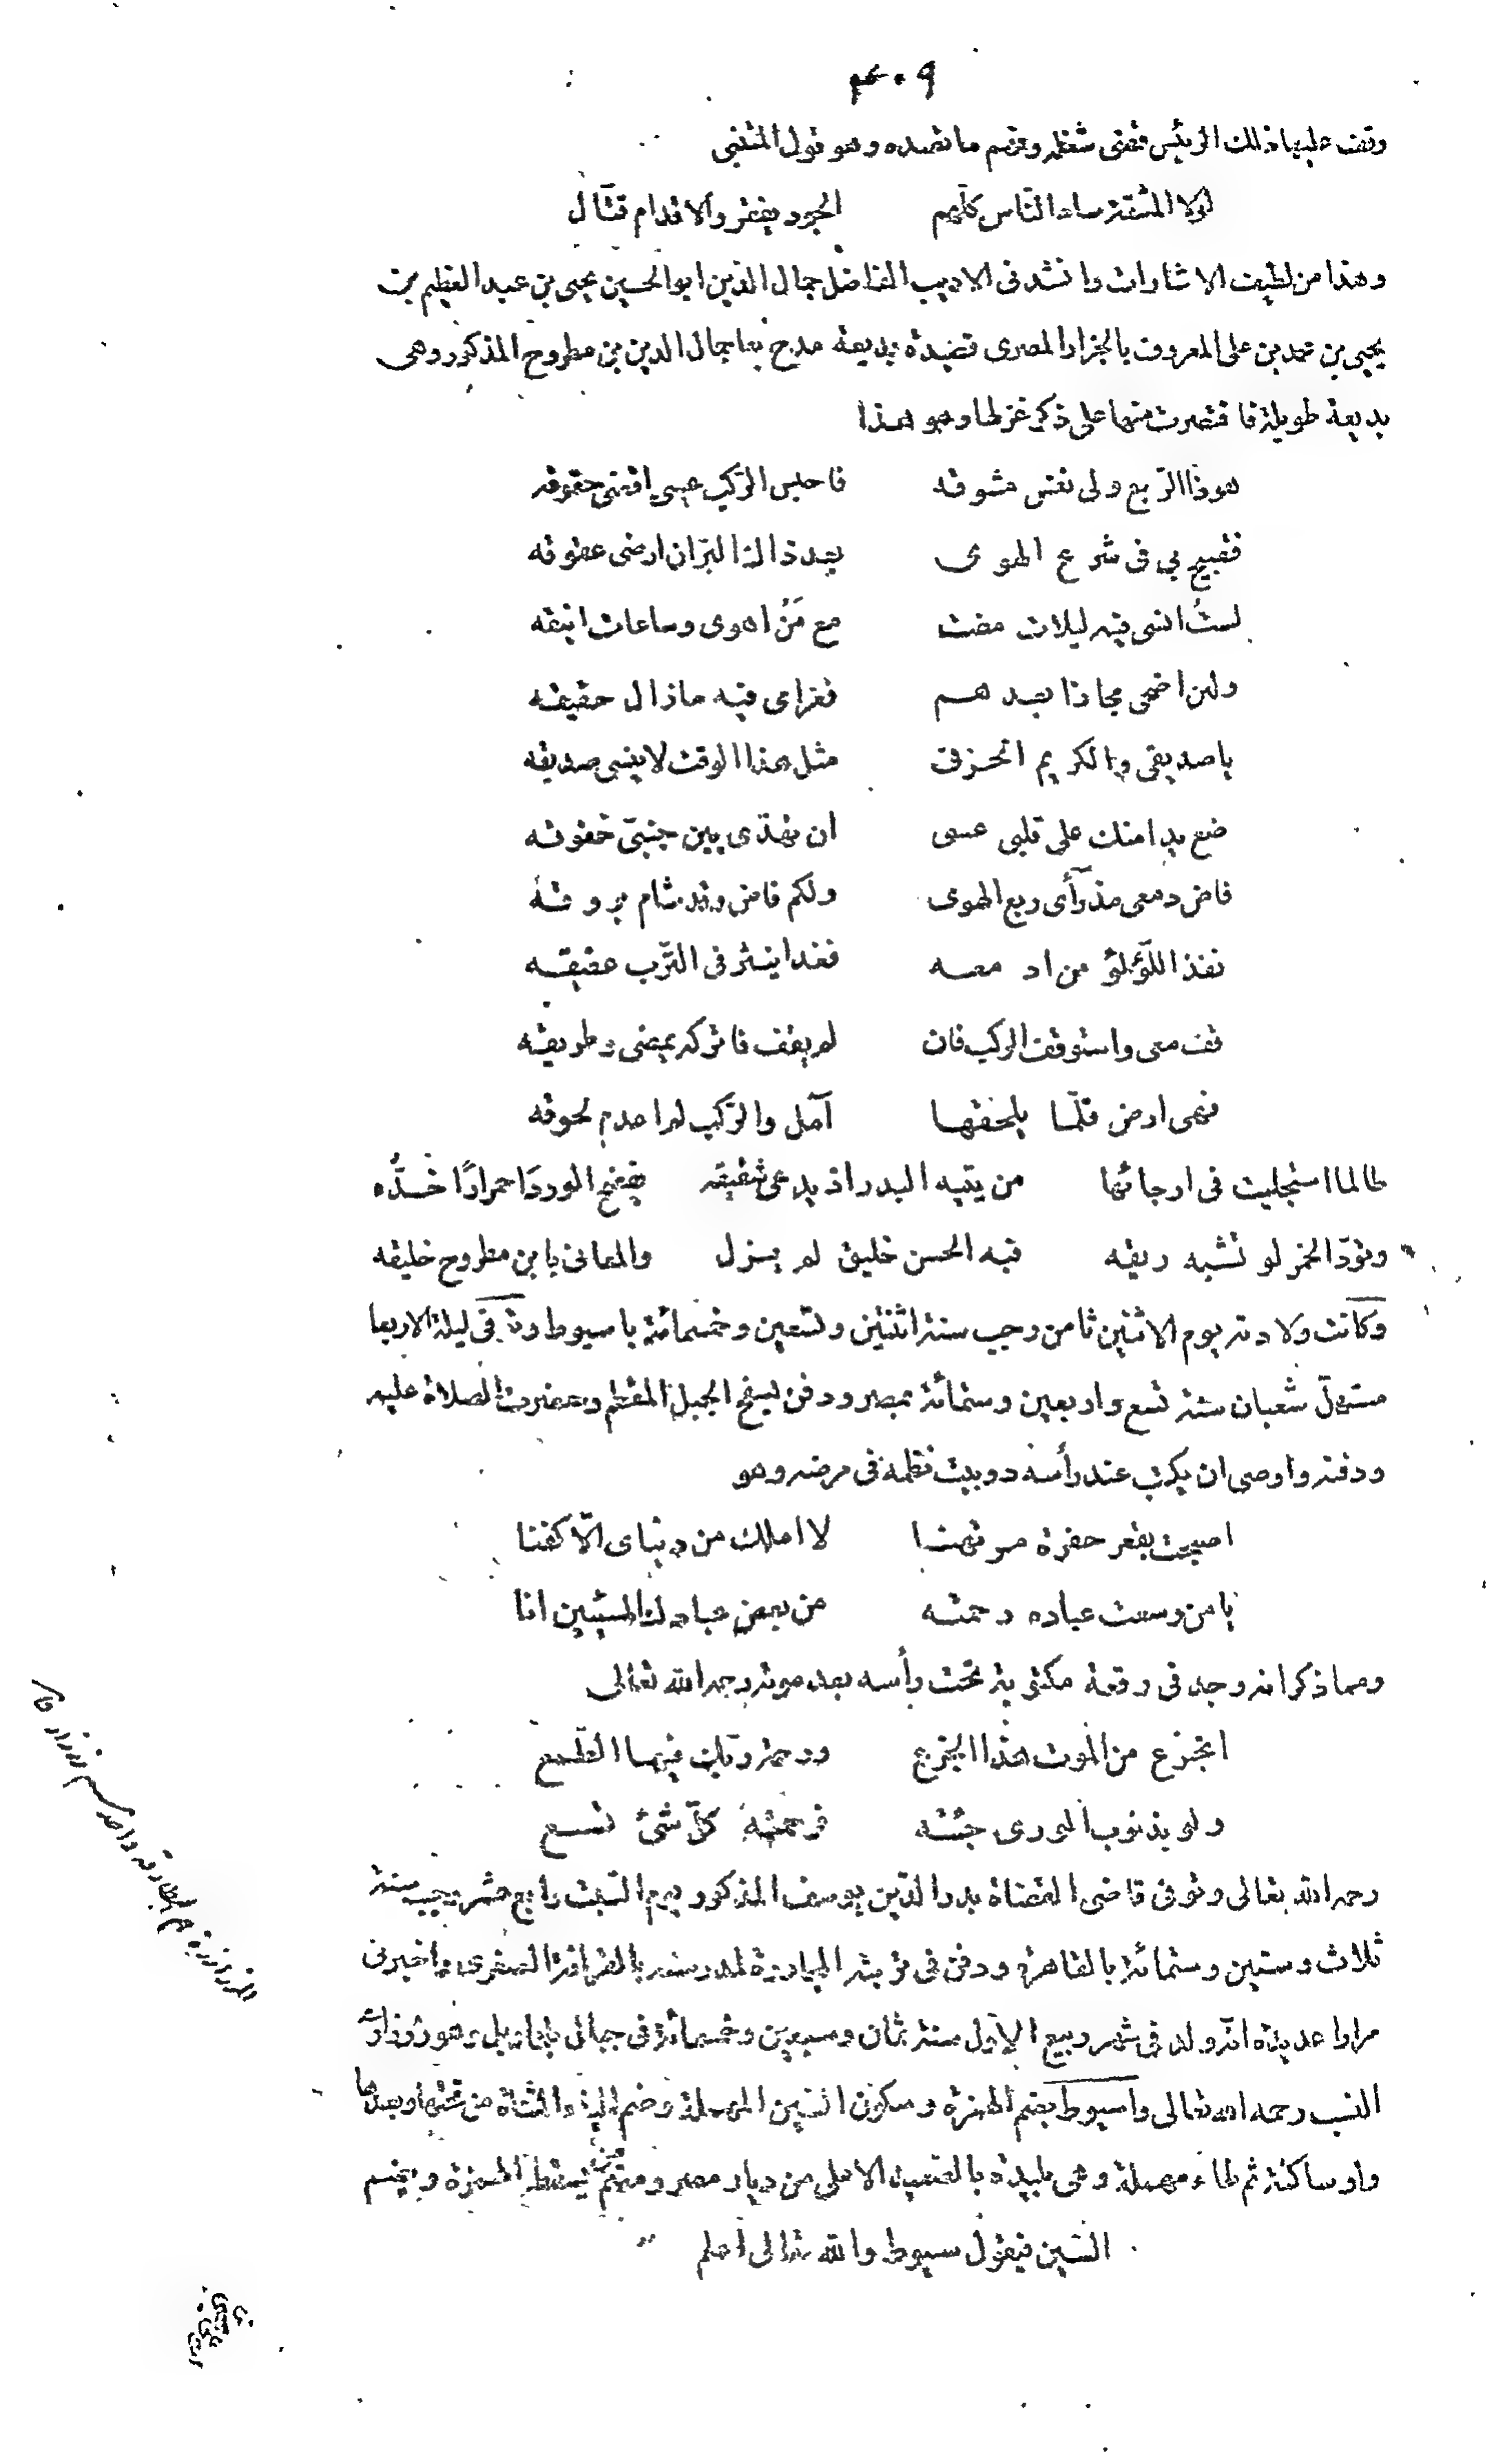 ٤٠٩
وقف عليها ذلك الرئيس فقضى شغله وفهم ما قصده وهو قول المتنبى
لولا المشقة ساد الناس كلّهم الجود يفقر والاقدام قتّال
وهذا من لطيف الاشارات وانشدنى الاديب الفاضل جمال الدين ابو الحسين يحيى بن عبد العظيم بن
يحيى بن محمد بن على المعروف بالجزار المصرى قصيدة بديعة مدح بها جمال الدين بن مطروح المذكور وهى
بديعة طويلة فاقتصرت منها على ذكر غزلها وهو هذا
هوذا الرّبع ولى نفس مشوقه فاحبس الرّكب عسى اقضى حقوقه
فقبيح بى فى شرع الهوى بعد ذاك البرّ ان ارضى عقوقه
لستُ انسى فيه ليلات مضت مع مَنْ اهوى وساعات انيقه
ولئن اضحى مجازا بعدهم فغرامى فيه مازال حقيقه
يا صديقى والكريم الحر فى مثل هذا الوقت لا ينسى صديقه
ضع يدا منك على قلبى عسى ان تهدّى بين جنبىّ خفوقه
فاض دمعى مذ رأى ربع الهوى ولكم فاض وقد شام بروقه
نفذ اللّؤلؤ من ادمعه فغدا ينثر فى التّرب عقيقه
قف معى واستوقف الركب فان لم يقف فاتركه يمضى وطريقه
فهى ارض قلّما يلحقها آمل والرّكب لم اعدم لحوقه
طالما استجليت فى ارجائها من يتيه البدر اذ يدعى شقيقه يفضح الورد احمرارًا خدّه
وتودّ الخمر لو تشبه ريقه فبه الحسن خليق لم يزل والمعانى بابن مطروح خليقه
وكانت ولادته يوم الاثنين ثامن رجب سنة اثنتين وتسعين وخمسمائة باسيوط وتوفى ليلة الاربعا
مستهلّ شعبان سنة تسع واربعين وستمائة بمصر ودفن بسفح الجبل المقطم وحضرت الصلاة عليه
ودفنه واوصى ان يكتب عند رأسه دوبيت نظمه فى مرضه وهو
اصبحت بقعر حفرة مرتهنا لا املك من دنياى الّا كفنا
يا من وسعت عباده رحمته من بعض عبادك المسيئين انا
ومما ذكر انه وجد فى رقعة مكتوبة تحت رأسه بعد موته رحمه الله تعالى
اتجزع من الموت هذا الجزع ورحمة ربّك فيها الطّمع
ولو بذنوب الورى جئته فرحمته كلّ شئ تسع
رحمه الله تعالى وتوفى قاضى القضاة بدر الدّين يوسف المذكور يوم السّبت رابع عشر رجب سنة
ثلاث وستين وستمائة بالقاهرة ودفن فى تربته المجاورة لمدرسته بالقرافة الصغرى واخبرنى
مرارا عديدة انّه ولد فى شهر ربيع الاول سنة ثمان وسبعين وخمسمائة فى جبال باربل وهو زرزارى
النسب رحمه الله تعالى واسيوط بضم الهمزة وسكون السّين المهملة وضم الياء المثناة من تحتها وبعدها
واو ساكنة ثم طاء مهملة وهى بليدة بالصعيد الاعلى من ديار مصر ومنهم من يسقط الهمزة ويضم
السّين فيقول سيوط والله تعالى اعلم